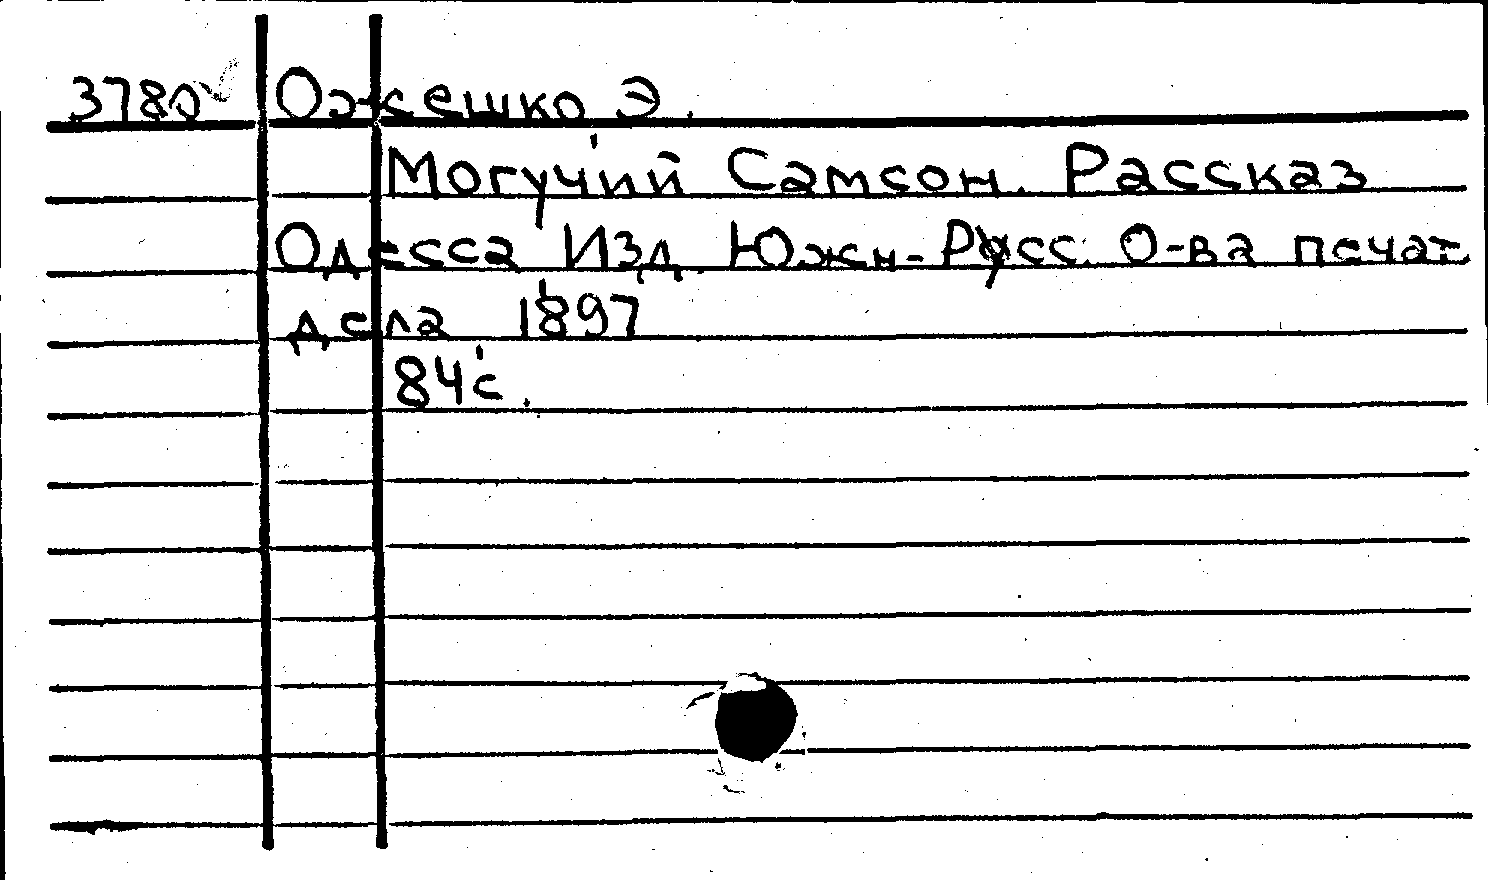 3780 Ожешко Э.
Могучий Самсон. Рассказ
Одесса Изд. Южн-Русс. О-ва печат.
дела 1897
84с.